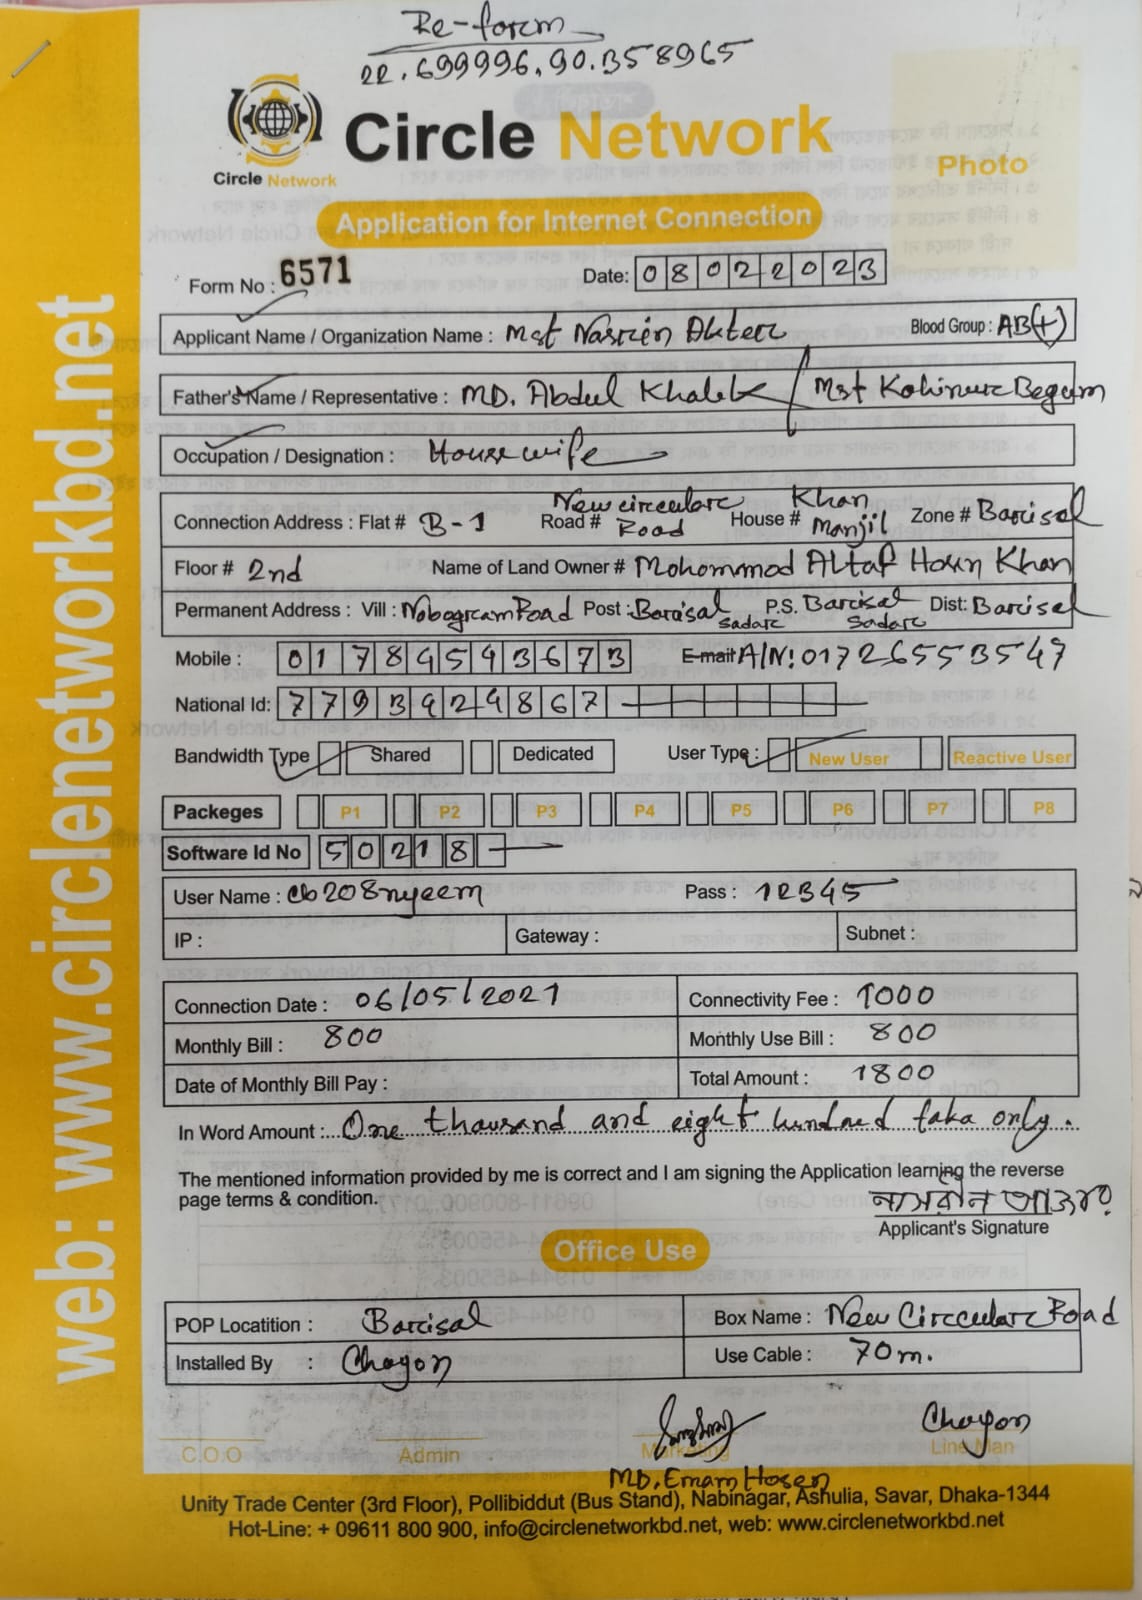 Re-form
22.699996,90.358965
Circle Network
Circle Network
Photo
Application for Internet Connection
Form No : 6571
Date: 08022023
Applicant Name / Organization Name : Mst Nasrin Akter Blood Group : AB(+)
Father's Name / Representative : MD. Abdul Khalek / Mst Kohinur Begum
Occupation / Designation : House wife
Connection Address : Flat # B-1 Road # New circular Road House # Khan Manjil Zone # Barisal
Floor # 2nd Name of Land Owner # Mohommod Altaf Hosin Khan
Permanent Address : Vill : Nobogram Road Post : Barisal sadar P.S. Barisal Sadar Dist: Barisal
Mobile : 01784543673 E-mail A/N: 01726553547
National Id: 7793424867
Bandwidth Type Shared Dedicated User Type : New User Reactive User
Packeges P1 P2 P3 P4 P5 P6 P7 P8
Software Id No 50218
User Name : cb208nyeem Pass : 12345
IP : Gateway : Subnet :
Connection Date : 06/05/2021 Connectivity Fee : 1000
Monthly Bill : 800 Monthly Use Bill : 800
Date of Monthly Bill Pay : Total Amount : 1800
In Word Amount : One thousand and eight hundred taka only.
The mentioned information provided by me is correct and I am signing the Application learning the reverse
page terms & condition.
নাসরীন আক্তার
Applicant's Signature
Office Use
POP Locatition : Barisal Box Name : New Circular Road
Installed By : Chayon Use Cable : 70m.
Chayon
C.O.O Admin Marketing Line Man
MD. Emam Hosen
Unity Trade Center (3rd Floor), Pollibiddut (Bus Stand), Nabinagar, Ashulia, Savar, Dhaka-1344
Hot-Line: + 09611 800 900, info@circlenetworkbd.net, web: www.circlenetworkbd.net
web: www.circlenetworkbd.net